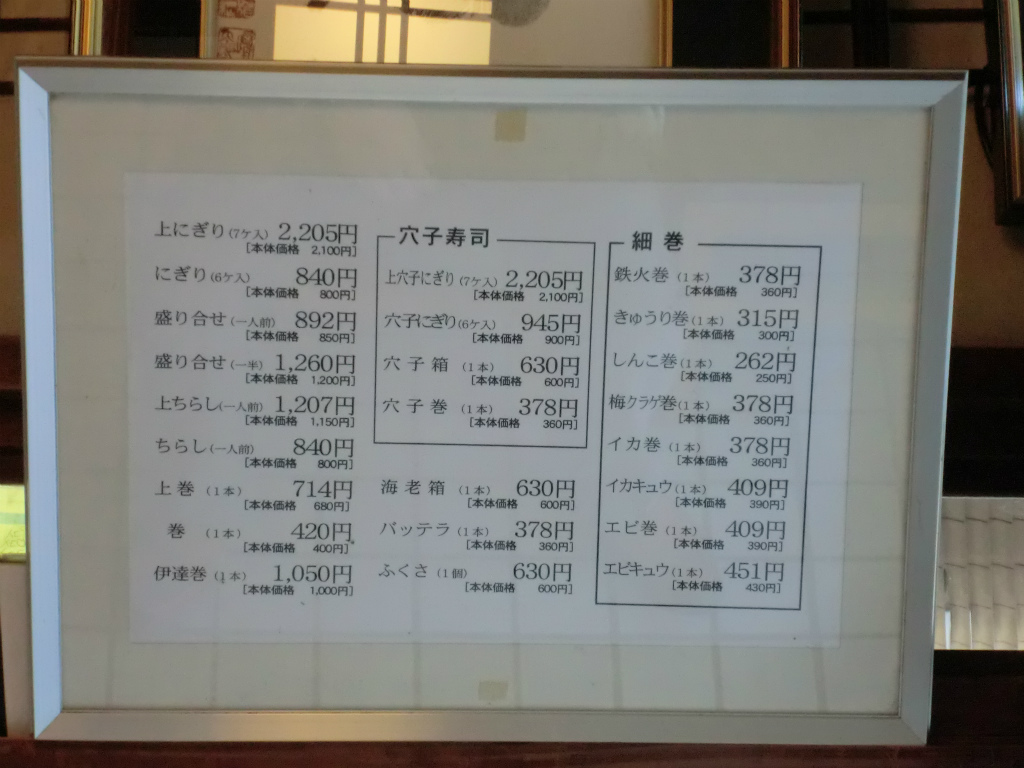 上にぎり(7ケ入) 2,205円
[本体価格 2,100円]
にぎり(6ケ入) 840円
[本体価格 800円]
盛り合せ(一人前) 892円
[本体価格 850円]
盛り合せ(一半) 1,260円
[本体価格 1,200円]
上ちらし(一人前) 1,207円
[本体価格 1,150円]
ちらし(一人前) 840円
[本体価格 800円]
上巻 (1本) 714円
[本体価格 680円]
巻 (1本) 420円
[本体価格 400円]
伊達巻 (1本) 1,050円
[本体価格 1,000円]
穴子寿司
上穴子にぎり(7ケ入) 2,205円
[本体価格 2,100円]
穴子にぎり(6ケ入) 945円
[本体価格 900円]
穴子箱 (1本) 630円
[本体価格 600円]
穴子巻 (1本) 378円
[本体価格 360円]
海老箱 (1本) 630円
[本体価格 600円]
バッテラ (1本) 378円
[本体価格 360円]
ふくさ (1個) 630円
[本体価格 600円]
細巻
鉄火巻 (1本) 378円
[本体価格 360円]
きゅうり巻(1本) 315円
[本体価格 300円]
しんこ巻(1本) 262円
[本体価格 250円]
梅クラゲ巻(1本) 378円
[本体価格 360円]
イカ巻 (1本) 378円
[本体価格 360円]
イカキュウ(1本) 409円
[本体価格 390円]
エビ巻 (1本) 409円
[本体価格 390円]
エビキュウ(1本) 451円
[本体価格 430円]